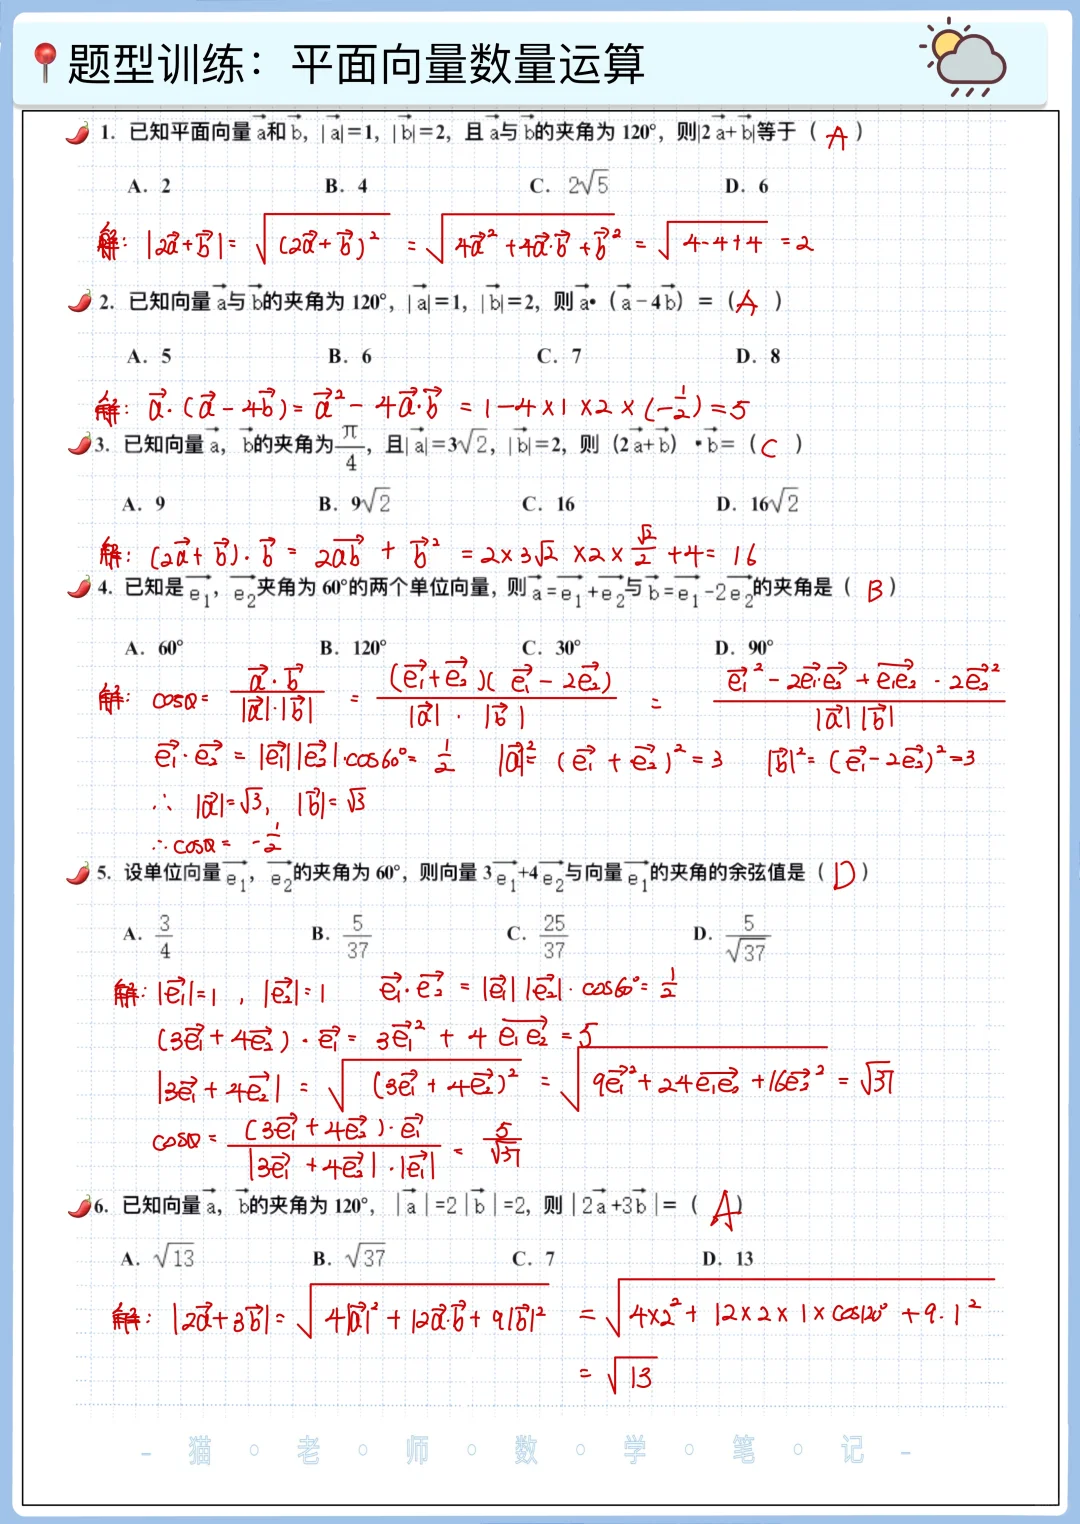 题型训练：平面向量数量运算
1. 已知平面向量a⃗和b⃗，|a⃗|=1，|b⃗|=2，且a⃗与b⃗的夹角为120°，则|2a⃗+b⃗|等于（ A ）
A. 2 B. 4 C. 2√5 D. 6
解：|2a⃗+b⃗|=√(2a⃗+b⃗)² =√4a⃗²+4a⃗·b⃗+b⃗² =√4-4+4 =2
2. 已知向量a⃗与b⃗的夹角为120°，|a⃗|=1，|b⃗|=2，则a⃗•（a⃗-4b⃗）=（A ）
A. 5 B. 6 C. 7 D. 8
解：a⃗·(a⃗-4b⃗)=a⃗²-4a⃗·b⃗ =1-4×1×2×(-1/2)=5
3. 已知向量a⃗，b⃗的夹角为π/4，且|a⃗|=3√2，|b⃗|=2，则（2a⃗+b⃗）•b⃗=（C ）
A. 9 B. 9√2 C. 16 D. 16√2
解：(2a⃗+b⃗)·b⃗ = 2ab⃗ + b⃗² =2×3√2×2×√2/2+4=16
4. 已知是e₁⃗，e₂⃗夹角为60°的两个单位向量，则a⃗=e₁⃗+e₂⃗与b⃗=e₁⃗-2e₂⃗的夹角是（ B ）
A. 60° B. 120° C. 30° D. 90°
解：cosα= a⃗·b⃗/|a⃗|·|b⃗| = (e₁⃗+e₂⃗)(e₁⃗-2e₂⃗)/|a⃗|·|b⃗| = e₁⃗²-2e₁⃗·e₂⃗+e₁e₂⃗-2e₂⃗²/|a⃗||b⃗|
e₁⃗·e₂⃗=|e₁⃗||e₂⃗|·cos60°=1/2 |a⃗|²=(e₁⃗+e₂⃗)²=3 |b⃗|²=(e₁⃗-2e₂⃗)²=3
∴ |a⃗|=√3，|b⃗|=√3
∴cosα= -1/2
5. 设单位向量e₁⃗，e₂⃗的夹角为60°，则向量3e₁⃗+4e₂⃗与向量e₁⃗的夹角的余弦值是（ D ）
A. 3/4 B. 5/37 C. 25/37 D. 5/√37
解：|e₁⃗|=1，|e₂⃗|=1 e₁⃗·e₂⃗=|e₁⃗||e₂⃗|·cos60°=1/2
(3e₁⃗+4e₂⃗)·e₁⃗=3e₁⃗²+4e₁e₂⃗=5
|3e₁⃗+4e₂⃗| =√(3e₁⃗+4e₂⃗)² =√9e₁⃗²+24e₁e₂⃗+16e₂⃗² =√37
cosα= (3e₁⃗+4e₂⃗)·e₁⃗/|3e₁⃗+4e₂⃗|·|e₁⃗| = 5/√37
6. 已知向量a⃗，b⃗的夹角为120°，|a⃗|=2|b⃗|=2，则|2a⃗+3b⃗|=（ A ）
A. √13 B. √37 C. 7 D. 13
解：|2a⃗+3b⃗|=√4|a⃗|²+12a⃗·b⃗+9|b⃗|² =√4×2²+12×2×1×cos120°+9·1²
=√13
- 猫 · 老 · 师 · 数 · 学 · 笔 · 记 -